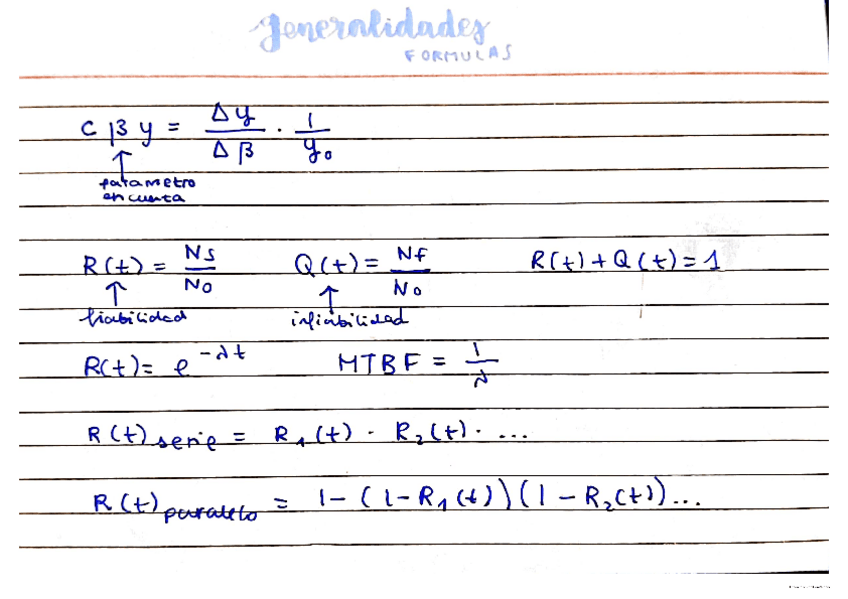 Generalidades
FORMULAS
C β y = Δy/Δβ · 1/y₀
parametro
en cuenta
R(t) = Ns/No Q(t) = Nf/No R(t) + Q(t) = 1
fiabilidad infiabilidad
R(t) = e^-λt MTBF = 1/λ
R(t) serie = R₁(t) · R₂(t) · ...
R(t) paralelo = 1 - (1 - R₁(t))(1 - R₂(t))...